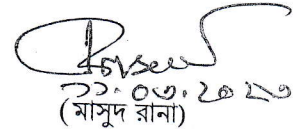 ২২.০৩.২০২৩
(মাসুদ রানা)